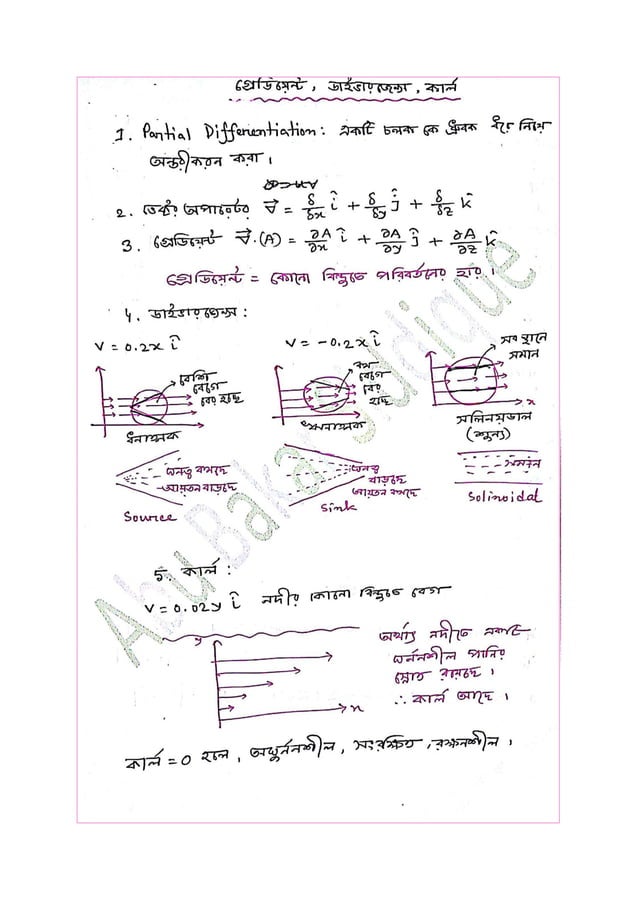 গ্রেডিয়েন্ট, ডাইভারজেন্স, কার্ল
1. Partial Differentiation: একটি চলক কে ধ্রুবক ধরে নিয়ে
অন্তরীকরন করা।
2. ভেক্টর অপারেটর ∇⃗ = δ/δx î + δ/δy ĵ + δ/δz k̂
3. গ্রেডিয়েন্ট ∇⃗.(A) = ∂A/∂x î + ∂A/∂y ĵ + ∂A/∂z k̂
গ্রেডিয়েন্ট = কোনো বিন্দুতে পরিবর্তনের হার।
4. ডাইভারজেন্স:
V = 0.2x î
V = -0.2x î
সব স্থানে
সমান
বেশি
বেগে
বের হচ্ছে
কম
বেগে
বের
হচ্ছে
x
ধনাত্মক
ঋণাত্মক
সলিনয়ডাল
(শূন্য)
ঘনত্ব কমছে
আয়তন বাড়ছে
Source
ঘনত্ব
বাড়ছে
আয়তন কমছে
Sink
সমান
Solinoidal
5. কার্ল:
V = 0.02y î নদীর কোনো বিন্দুতে বেগ
y
x
অর্থাৎ নদীতে একটি
ঘূর্ননশীল পানির
স্রোত রয়েছে।
∴ কার্ল আছে।
কার্ল = 0 হলে, অঘূর্ননশীল, সংরক্ষিত, রক্ষনশীল।
Abu Bakar Siddique